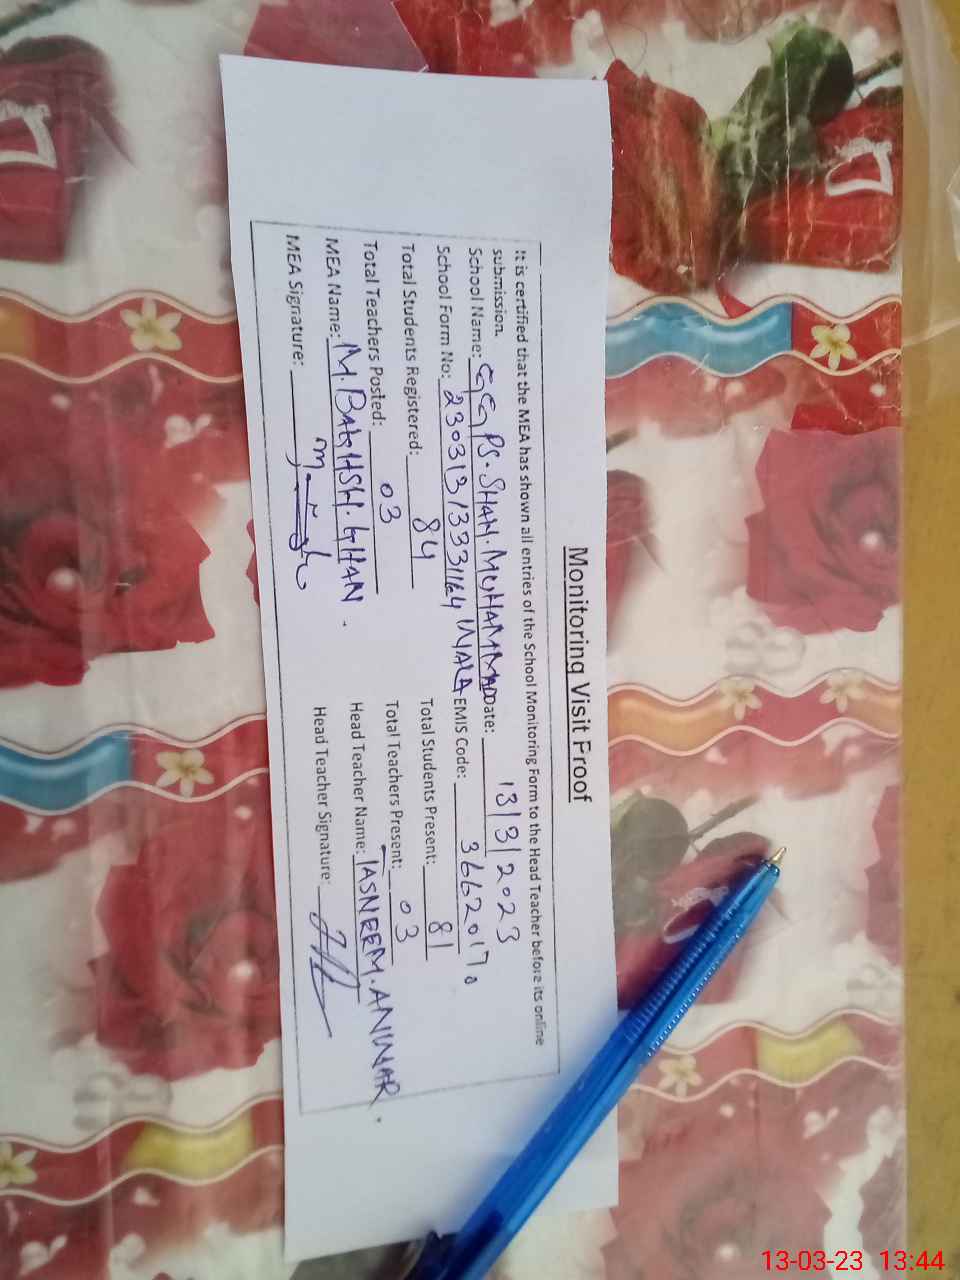 Monitoring Visit Froof
It is certified that the MEA has shown all entries of the School Monitoring Form to the Head Teacher before its online
submission.
School Name: GGPS. SHAH. MUHAMMAD WALA Date: 13/3/2023
School Form No: 23031313331164 EMIS Code: 36620170
Total Students Registered: 84 Total Students Present: 81
Total Teachers Posted: 03 Total Teachers Present: 03
MEA Name: M. BAKHSH. KHAN. Head Teacher Name: TASNEEM. ANWAR.
MEA Signature: Head Teacher Signature:
13-03-23 13:44